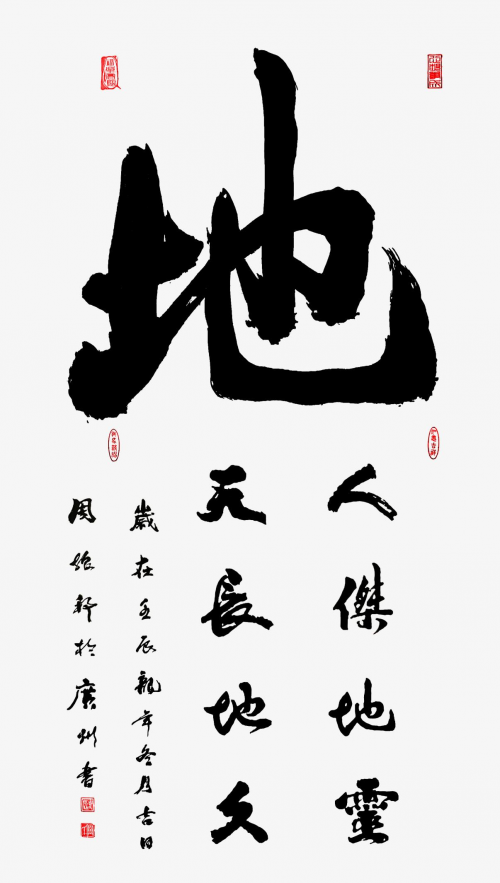 地
人傑地靈
天長地久
歲在壬辰龍年冬月吉日
於廣州書